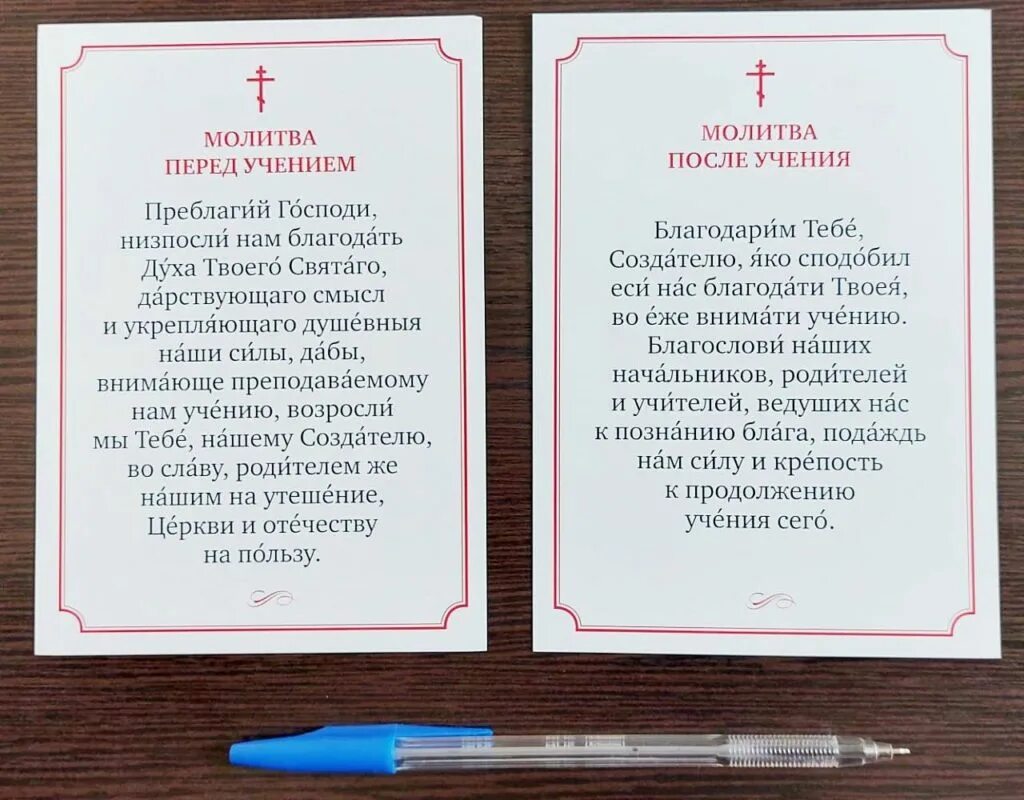 МОЛИТВА
ПЕРЕД УЧЕНИЕМ
Преблаги́й Го́споди,
низпосли́ нам благода́ть
Ду́ха Твоего́ Свята́го,
да́рствующаго смысл
и укрепля́ющаго душе́вныя
на́ши си́лы, да́бы,
внима́юще преподава́емому
нам уче́нию, возросли́
мы Тебе́, на́шему Созда́телю,
во сла́ву, роди́телем же
на́шим на утеше́ние,
Це́ркви и оте́честву
на по́льзу.
МОЛИТВА
ПОСЛЕ УЧЕНИЯ
Благодари́м Тебе́,
Созда́телю, я́ко сподо́бил
еси́ на́с благода́ти Твоея́,
во е́же внима́ти уче́нию.
Благослови́ на́ших
нача́льников, роди́телей
и учи́телей, ведуших на́с
к позна́нию бла́га, пода́ждь
на́м си́лу и кре́пость
к продолжению
уче́ния сего́.